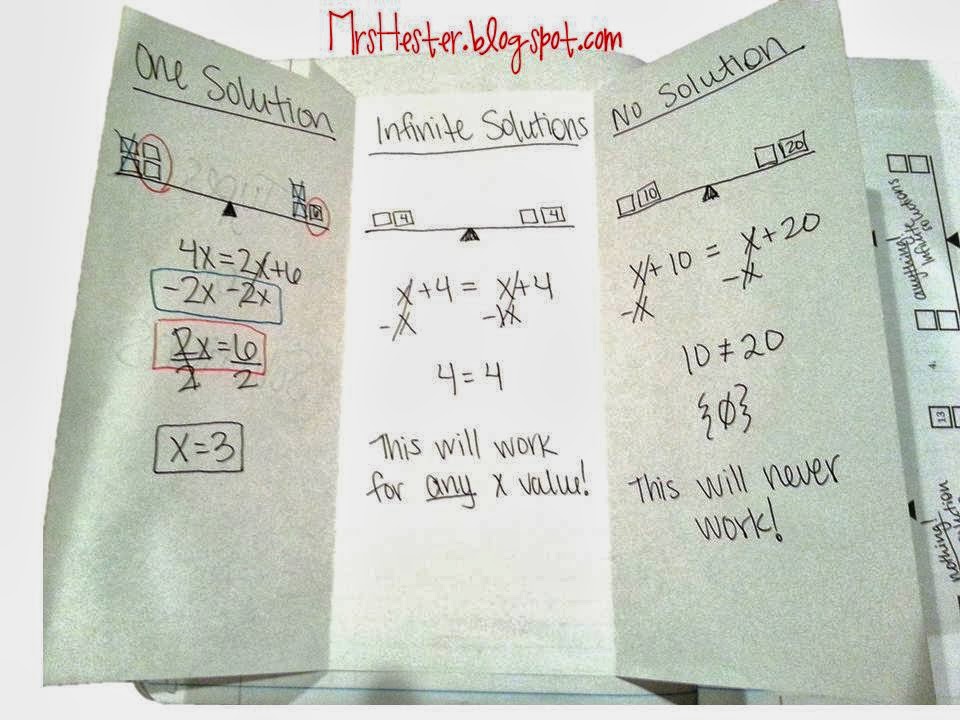 MrsHester.blogspot.com
One Solution
6
4x=2x+6
-2x -2x
2x=6
2 2
x=3
Infinite Solutions
4 4
x+4 = x+4
-x -x
4=4
This will work
for any x value!
No Solution
10 20
x+10 = x+20
-x -x
10≠20
{∅}
This will never
work!
anything!
infinite
solutions
4.
13
nothing!